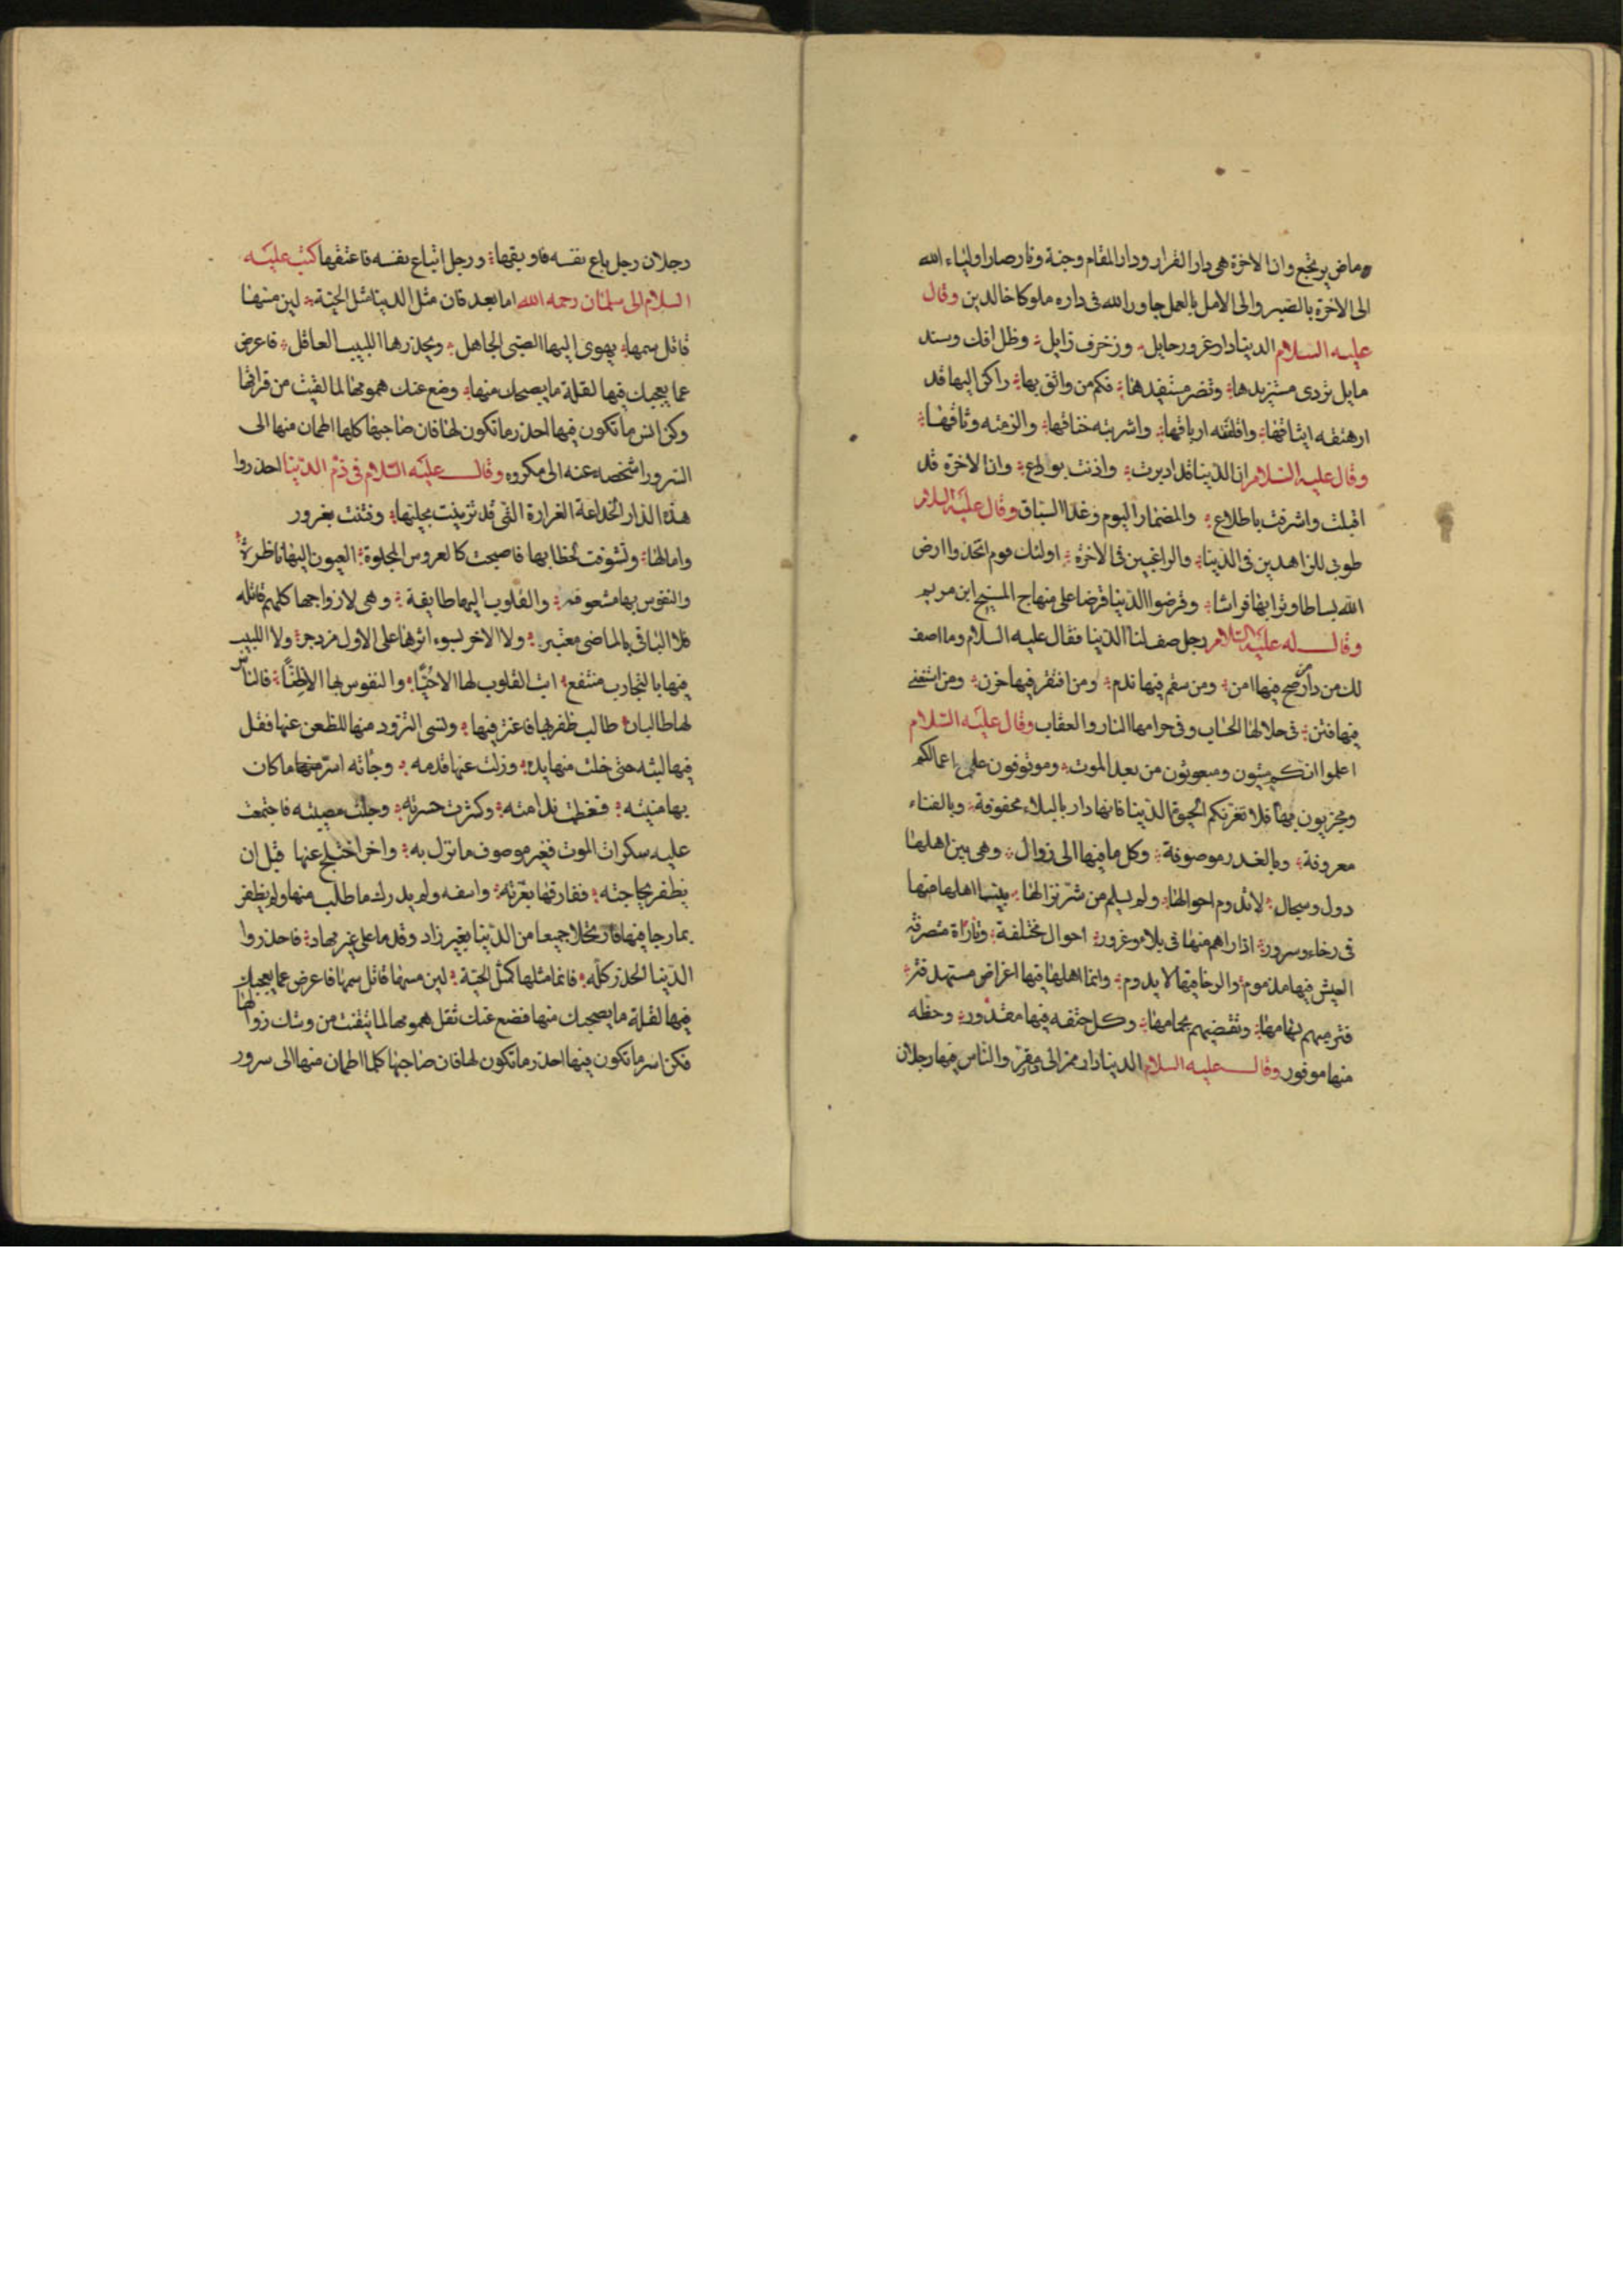 ماض يرتجع وان الاخرة هي دار القرار ودار المقام وجنة ونار صار اولياء الله
الى الاخرة بالصبر والى الامل بالعمل جاور الله في داره ملوكا خالدين وقال
عليه السلام الدنيا دار غرور حايل وزخرف زايل وظل افل وسند
مايل تردى مستزيدها وتضر مستفيدها فكم من واثق بها راكن اليها قد
ارهنته ايثاقها واغلقته ارباقها واشربته خناقها والزمته وثاقها
وقال عليه السلام ان الدنيا قد ادبرت واذنت بوداع وان الاخرة قد
اقبلت واشرفت باطلاع والمضمار اليوم وغدا السباق وقال عليه السلام
طوبى للزاهدين في الدنيا والراغبين في الاخرة اولئك قوم اتخذوا ارض
الله بساطا وترابها فراشا وقرضوا الدنيا قرضا على منهاج المسيح ابن مريم
وقال له عليه السلام رجل صف لنا الدنيا فقال عليه السلام وما اصف
لك من دار من صح فيها امن ومن سقم فيها ندم ومن افتقر فيها حزن ومن استغنى
فيها فتن في حلالها الحساب وفي حرامها النار والعقاب وقال عليه السلام
اعلموا انكم ميتون ومبعوثون من بعد الموت وموقوفون على اعمالكم
ومجزيون بها فلا تغرنكم الحيوة الدنيا فانها دار بالبلاء محفوفة وبالفناء
معروفة وبالغدر موصوفة وكل ما فيها الى زوال وهي بين اهلها
دول وسجال لا تدوم احوالها ولم يسلم من شر نزالها بينما اهلها منها
في رخاء وسرور اذا راهم منها في بلاء وغرور احوال مختلفة وتاراة متصرفة
العيش فيها مذموم والرخا فيها لا يدوم وانما اهلها فيها اغراض مستهدفة
فترميهم بهامها وتقضيهم بحامها وكل حتفه فيها مقدور وحظه
منها موفور وقال عليه السلام الدنيا دار ممر الى مقر والناس فيها رجلان
رجلان رجل باع نفسه فاوبقها ورجل ابتاع نفسه فاعتقها كتب عليه
السلام الى سلمان رحمه الله اما بعد فان مثل الدنيا مثل الحية لين مسها
قاتل سمها يهوى اليها الصبى الجاهل ويحذرها اللبيب العاقل فاعرض
عما يعجبك فيها لقلة ما يصحبك منها وضع عنك همومها لما لقيت من فراقها
وكن انس ما تكون فيها احذر ما تكون لها فان صاحبها كلها اطمان منها الى
السرور اشخصه عنه الى مكروه وقال عليه السلام في ذم الدنيا احذروا
هذه الدار الخداعة الغرارة التي قد تزينت بحليها وفتنت بغرور
وامالها وتشوفت لخطابها فاصبحت كالعروس المجلوة العيون اليها ناظرة
والنفوس بها مشعوفه والقلوب اليها طايقة وهي لازواجها كلهم قاتله
فلا الباقى بالماضى معتبر ولا الاخر لسوء اثرها على الاول مزدجر ولا اللبيب
فيها بالتجارب منتفع ابت القلوب لها الا حبًا والنفوس بها الا ظنًا فالناس
لها طالبان طالب ظفر بها فاغتر فيها ونسى التزود منها للظعن عنها فقل
فيها لبثه حتى خلت منها يده وزلت عنها قدمه وجأته اسر منها ما كان
بها منيته فعظمت ندامته وكثرت حسرته وجلت مصيبته فاجتمعت
عليه سكرات الموت فغير موصوف ما نزل به واخر اختلج عنها قبل ان
يظفر بحاجته ففارقها بغرته واسفه ولم يدرك ما طلب منها ولم يظفر
بما رجا فيها فارتحلا جميعا من الدنيا بغير زاد وقدما على غير مهاد فاحذروا
الدنيا الحذر كله فانما مثلها كمثل الحية لين مسها قاتل سمها فاعرض عما يعجبك
فيها لقلة ما يصحبك منها فضع عنك ثقل همومها لما تيقنت من وشك زوالها
فكن اسر ما تكون فيها احذر ما تكون لها فان صاحبها كلما اطمان منها الى سرور